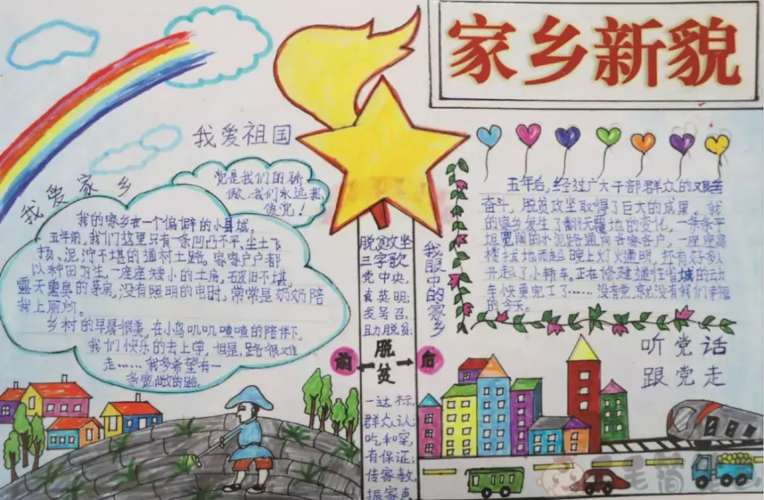 家乡新貌
我爱祖国
我爱家乡
党是我们的骄
傲，我们永远热
爱党！
我的家乡在一个偏僻的小县城，
五年前，我们这里只有一条凹凸不平，尘土飞
扬，泥泞不堪的通村土路。家家户户都
以种田为生，一座座矮小的土房，破旧不堪，
露天熏臭的茅房，没有照明的电时，常常是奶奶陪
我上厕所。
乡村的早晨很美，在小鸟叽叽喳喳的陪伴下，
我们快乐的去上学，但是，路很难
走……我多希望有一
条宽敞的路。
脱贫攻坚
三字歌
党中央，
真英明；
发号召，
助脱贫；
脱贫
一达标，
群众认；
吃和穿，
有保证；
传家教，
振家声
前
后
我眼中的家乡
五年后，经过广大干部群众的艰苦
奋斗，脱贫攻坚取得了巨大的成果，我
的家乡发生了翻天覆地的变化，一条条平
坦宽阔的水泥路通向各家各户，一座座高
楼拔地而起，晚上灯火通明，还有好多人
开起了小轿车，正在修建通往县城的动
车快要完工了……没有党，就没有我们幸福
的今天。
听党话
跟党走